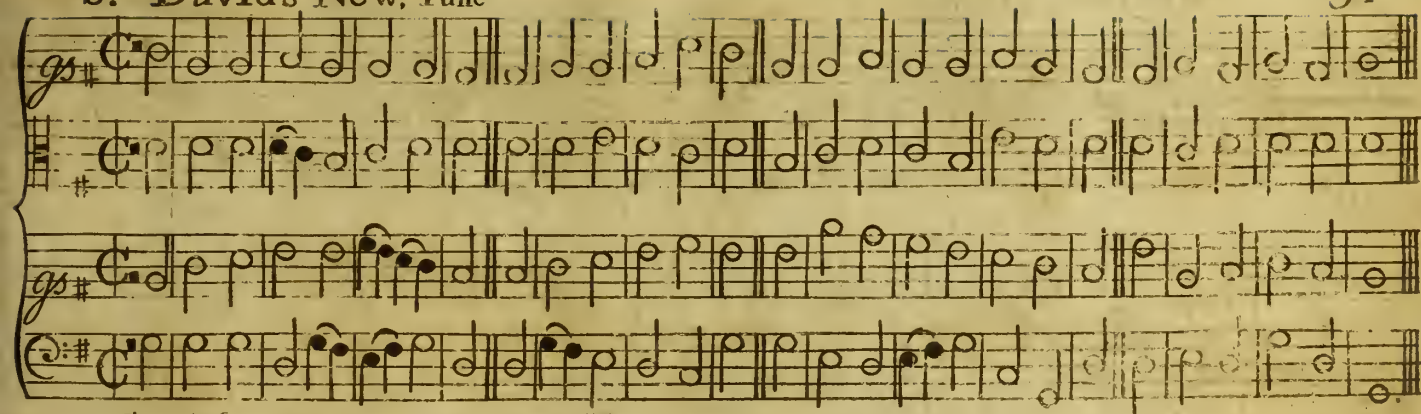 S. Davids New, Tune